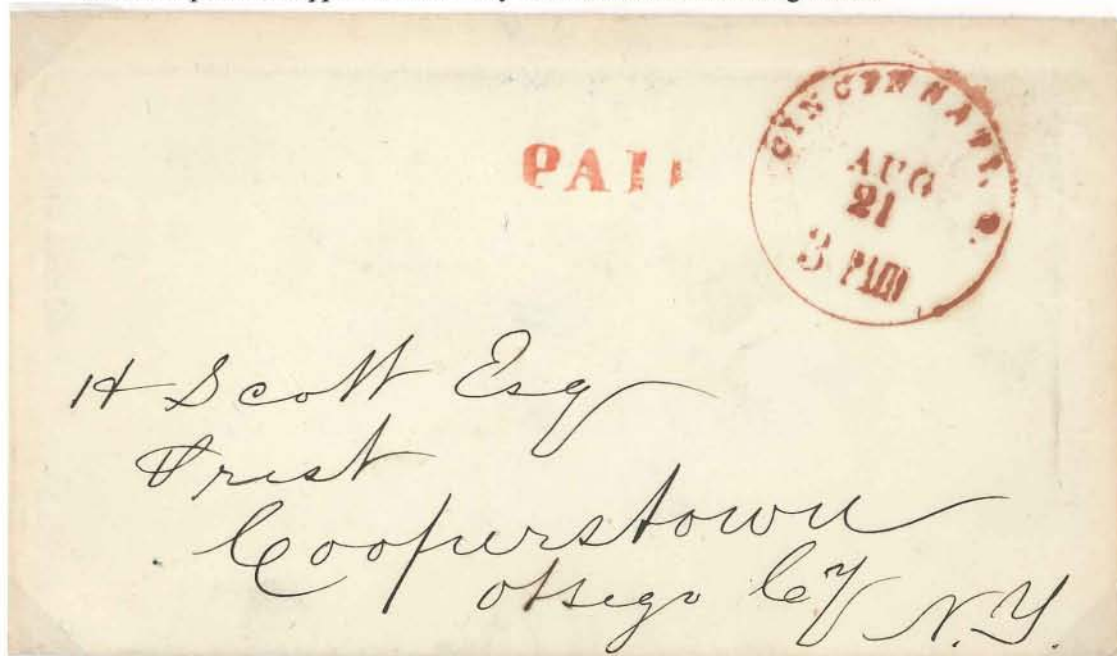 PAID
CINCINNATI. O.
AUG
21
3 PAID
H Scott Esq
Prest
Cooperstown
Otsego Cy N.Y.